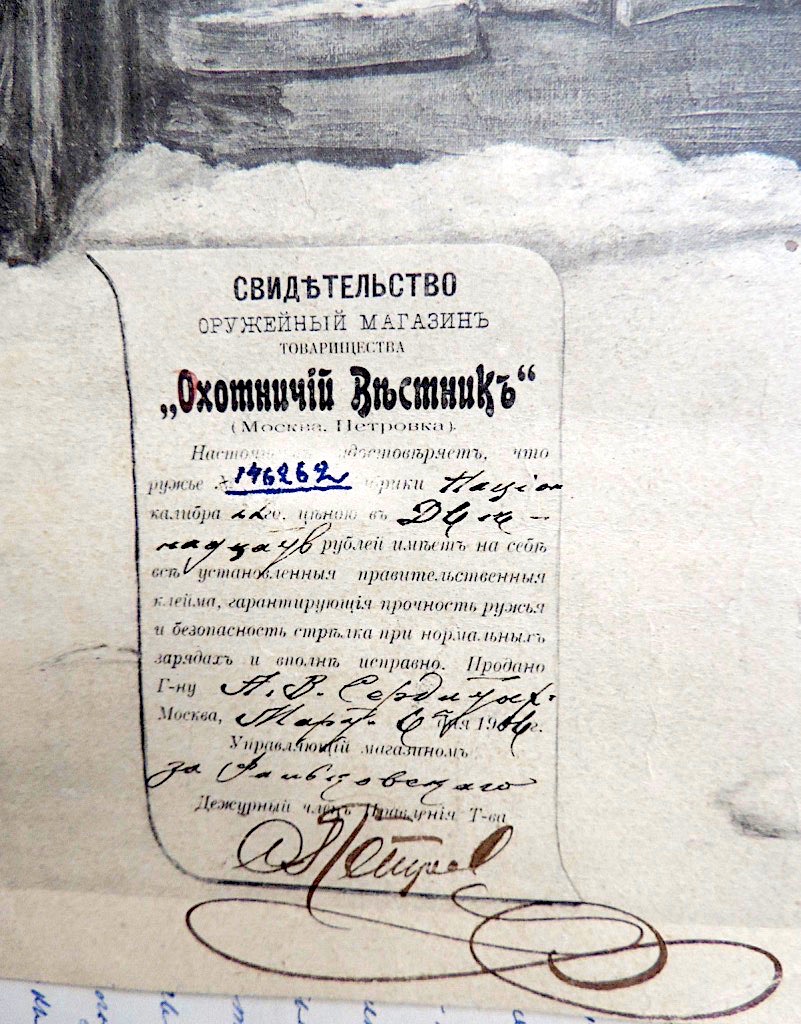 СВИДѢТЕЛЬСТВО
ОРУЖЕЙНЫЙ МАГАЗИНЪ
ТОВАРИЩЕСТВА
„Охотничій Вѣстникъ“
(Москва, Петровка).
удостовѣряетъ, что
ружье № 146262 Націон
калибра 22го. цѣною въ Двѣ-
надцать рублей имѣетъ на себѣ
всѣ установленныя правительственныя
клейма, гарантирующія прочность ружья
и безопасность стрѣлка при нормальныхъ
зарядахъ и вполнѣ исправно. Продано
Г-ну А. В.
Москва, Март. 6 дня 1906 г.
Управляющій магазиномъ
за
Дежурный членъ Правленія Т-ва
Петров